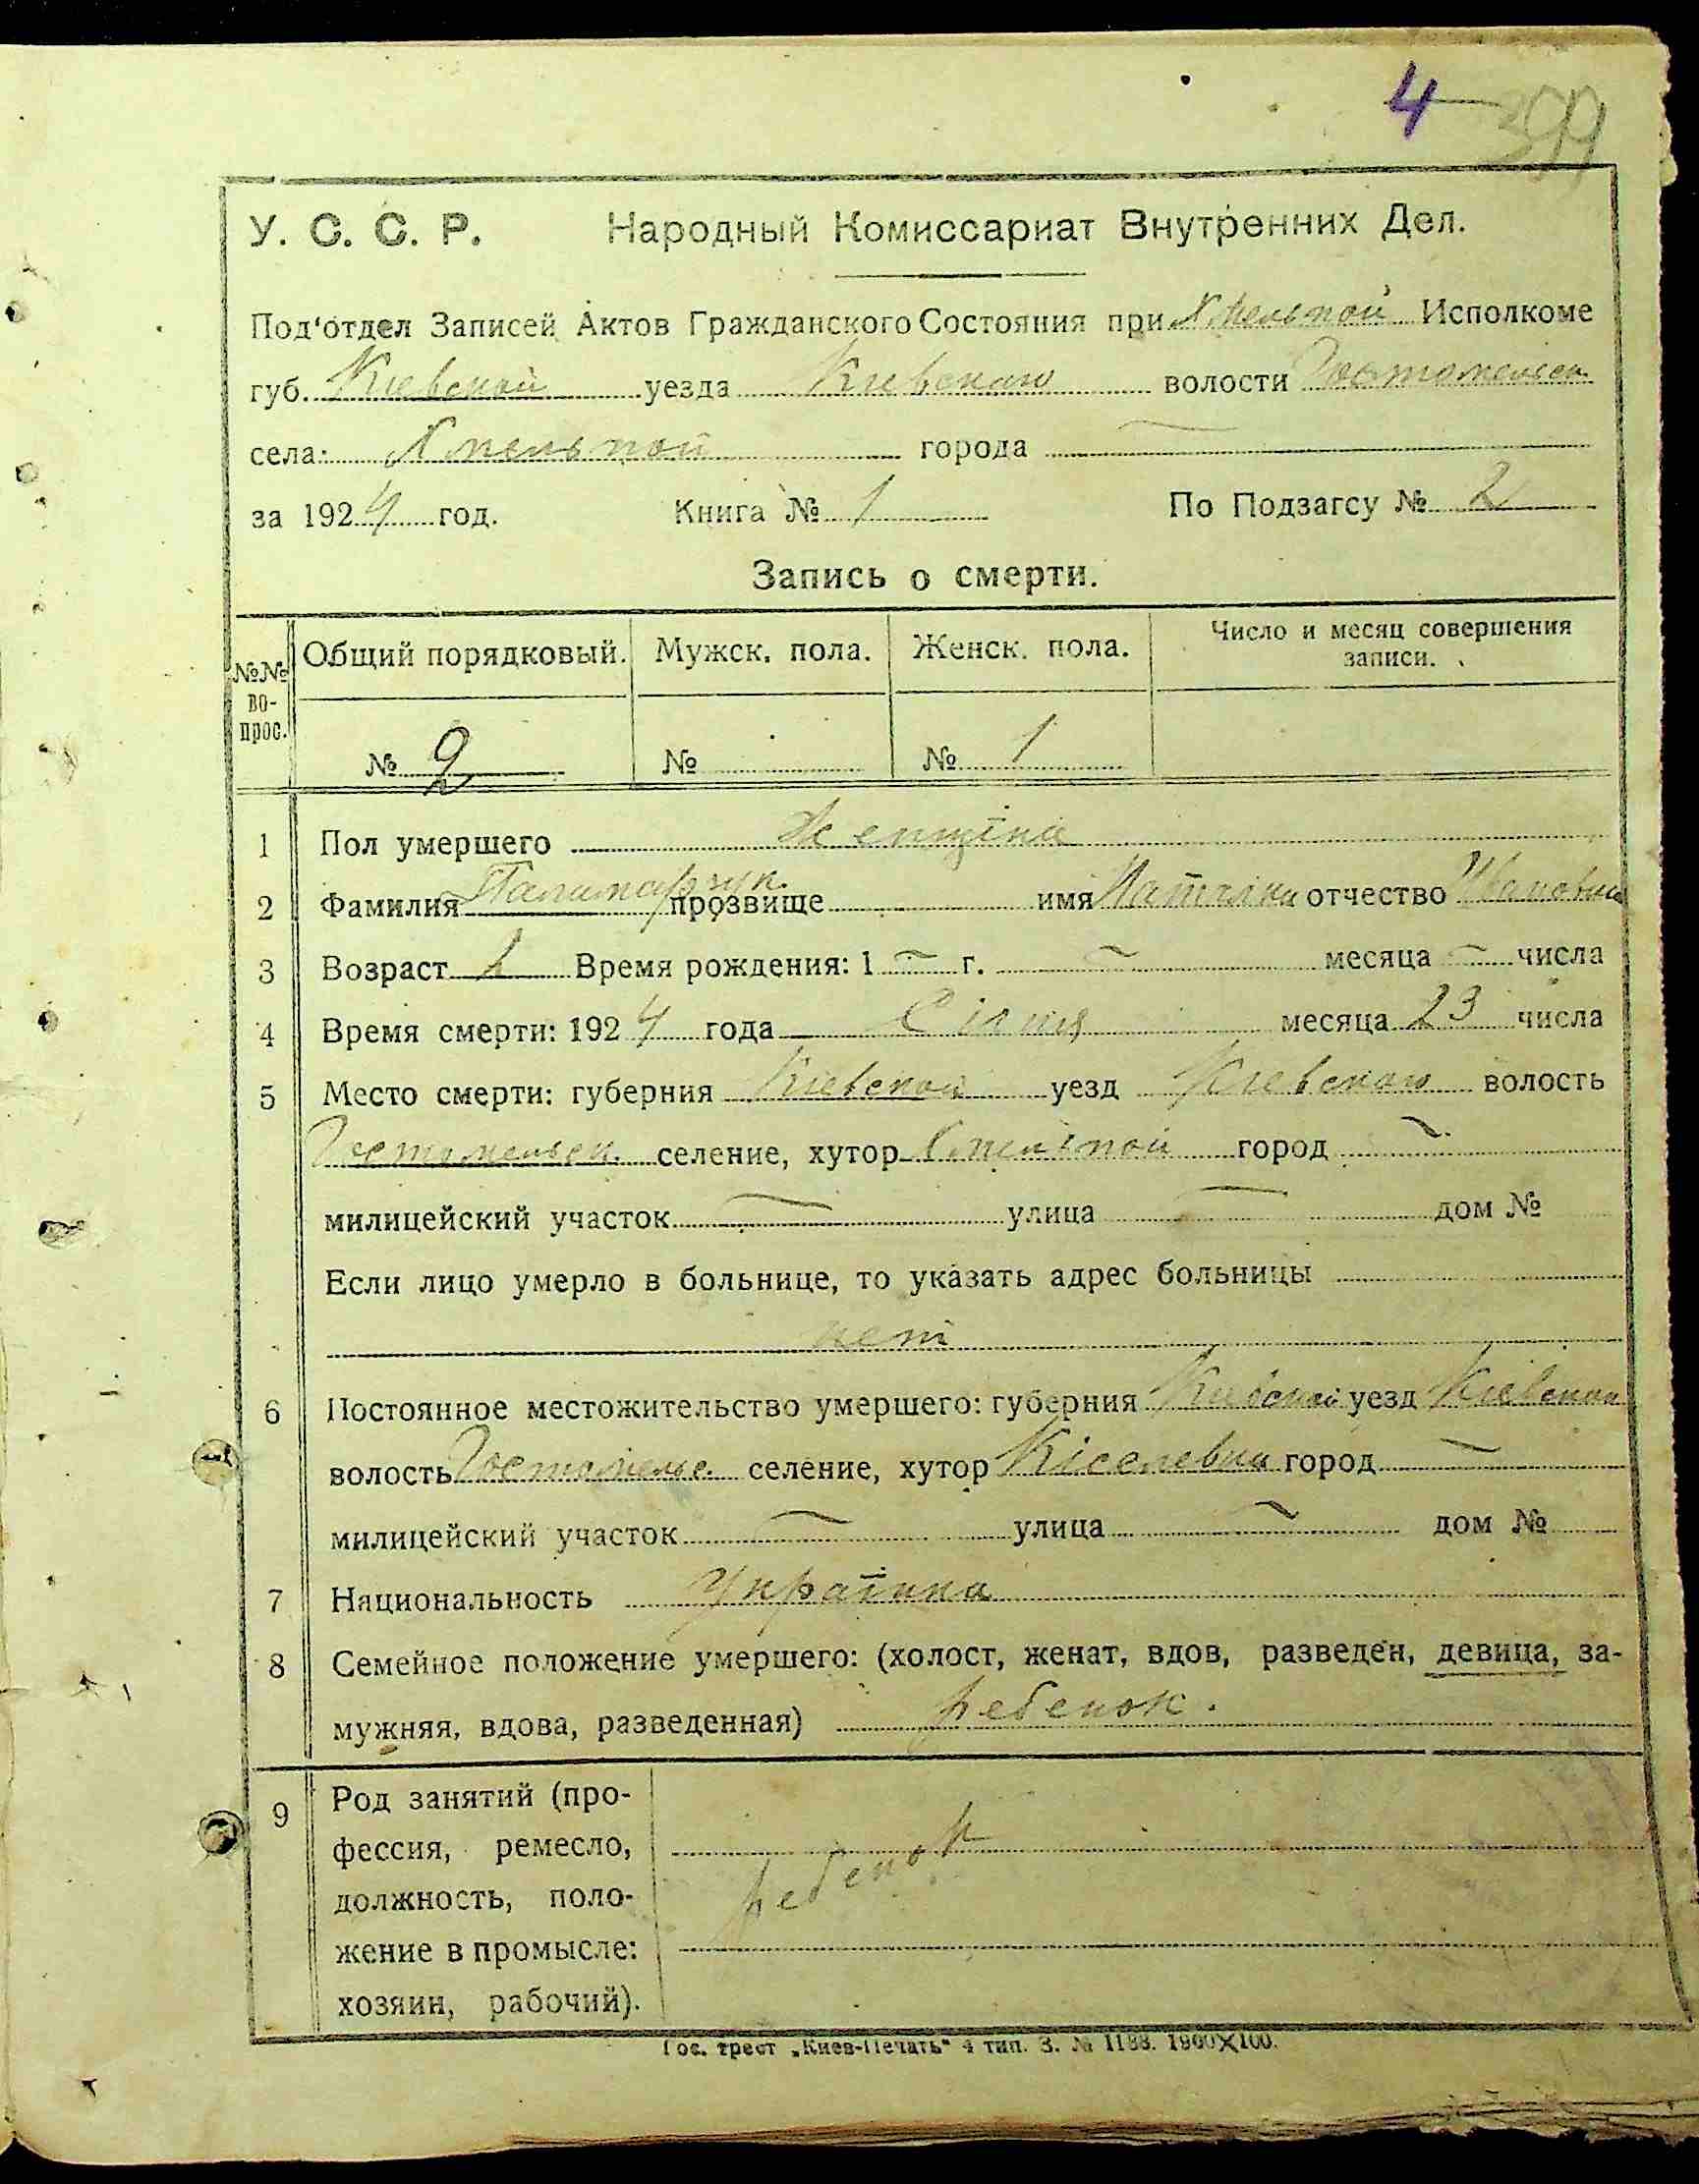 4 399
У. С. С. Р. Народный Комиссариат Внутренних Дел.
Под'отдел Записей Актов Гражданского Состояния при Хмельной Исполкоме
губ. Киевской уезда Киевскаго волости Гостомельск
села: Хмельной города —
за 1924 год. Книга № 1 По Подзагсу № 2
Запись о смерти.
№№ во-прос. Общий порядковый. Мужск. пола. Женск. пола. Число и месяц совершения записи.
№ 2 № № 1
1 Пол умершего Женщіна
2 Фамилия Паламарчук прозвище имя Наталка отчество Ивановна
3 Возраст Время рождения: 1 — г. — месяца — числа
4 Время смерти: 1924 года Січня месяца 23 числа
5 Место смерти: губерния Киевской уезд Киевскаго волость
Гостомельск. селение, хутор Хмельной город —
милицейский участок — улица — дом №
Если лицо умерло в больнице, то указать адрес больницы
нет
6 Постоянное местожительство умершего: губерния Киевской уезд Киевской
волость Гостомельс. селение, хутор город —
милицейский участок — улица — дом №
7 Национальность Украінка
8 Семейное положение умершего: (холост, женат, вдов, разведен, девица, за-
мужняя, вдова, разведенная) ребенок.
9 Род занятий (про-
фессия, ремесло,
ребенок
должность, поло-
жение в промысле:
хозяин, рабочий).
Гос. трест „Киев-Печать" 4 тип. З. № 1188. 1900×100.